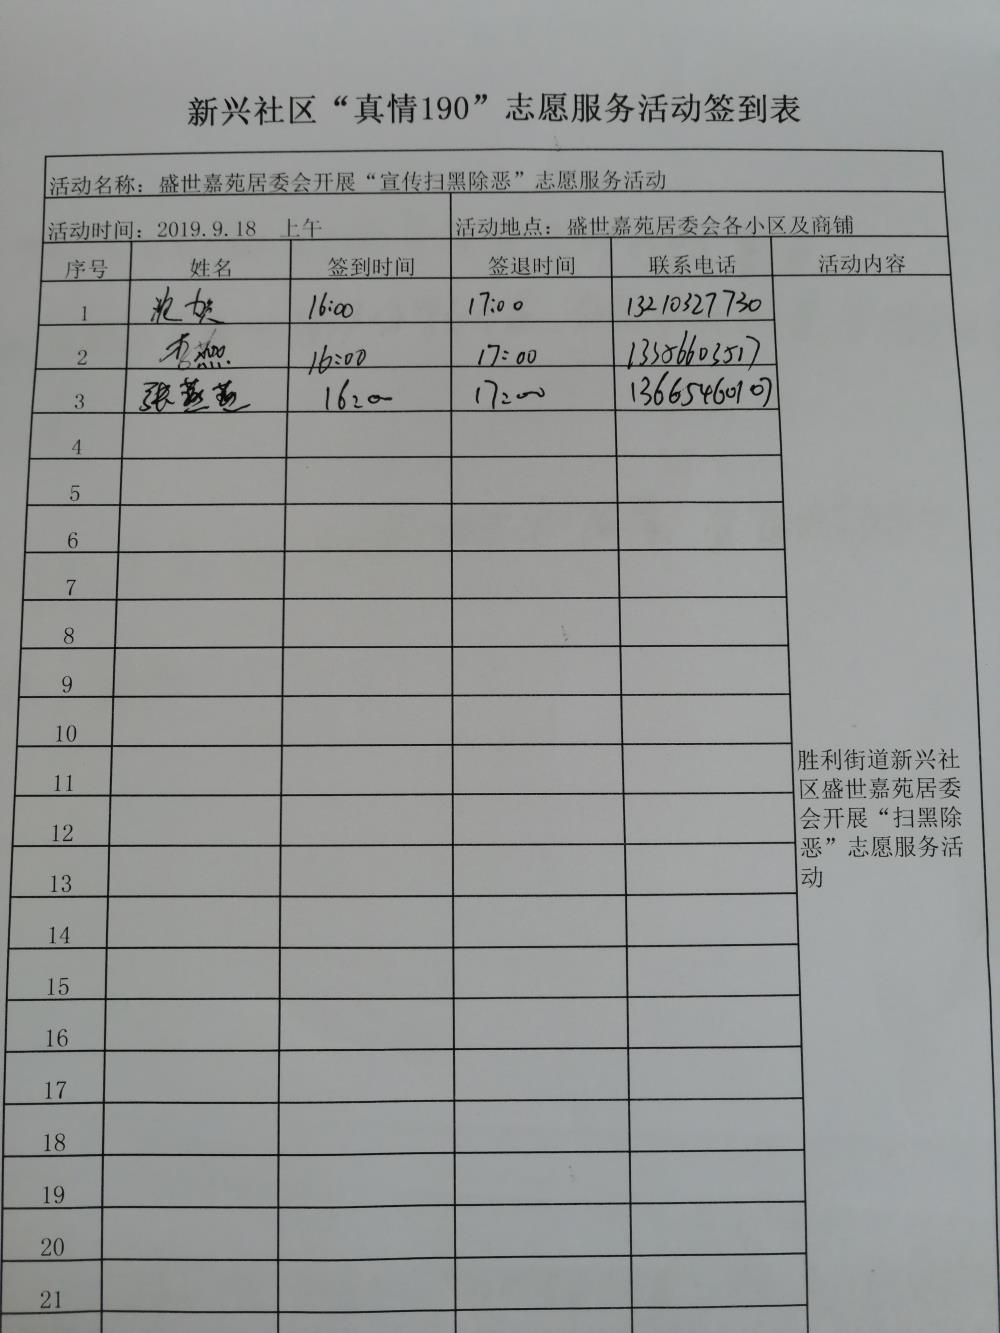 新兴社区“真情190”志愿服务活动签到表
活动名称：盛世嘉苑居委会开展“宣传扫黑除恶”志愿服务活动
活动时间：2019.9.18 上午 活动地点：盛世嘉苑居委会各小区及商铺
序号 姓名 签到时间 签退时间 联系电话 活动内容
1 16:00 17:00 13210327730
2 李燕 16:00 17:00 13356603517
3 张燕燕 16:00 17:00
4
5
6
7
8
9
10
11
12
13
14
15
16
17
18
19
20
21
胜利街道新兴社
区盛世嘉苑居委
会开展“扫黑除
恶”志愿服务活
动